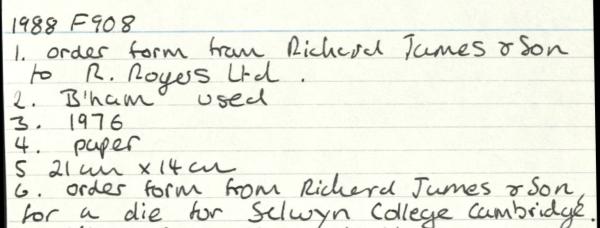 1988 F908
1. order form from Richard James & Son
to R. Rogers Ltd.
2. B'ham used
3. 1976
4. paper
5 21 cm x 14 cm
6. order form from Richard James & Son,
for a die for Selwyn College Cambridge.